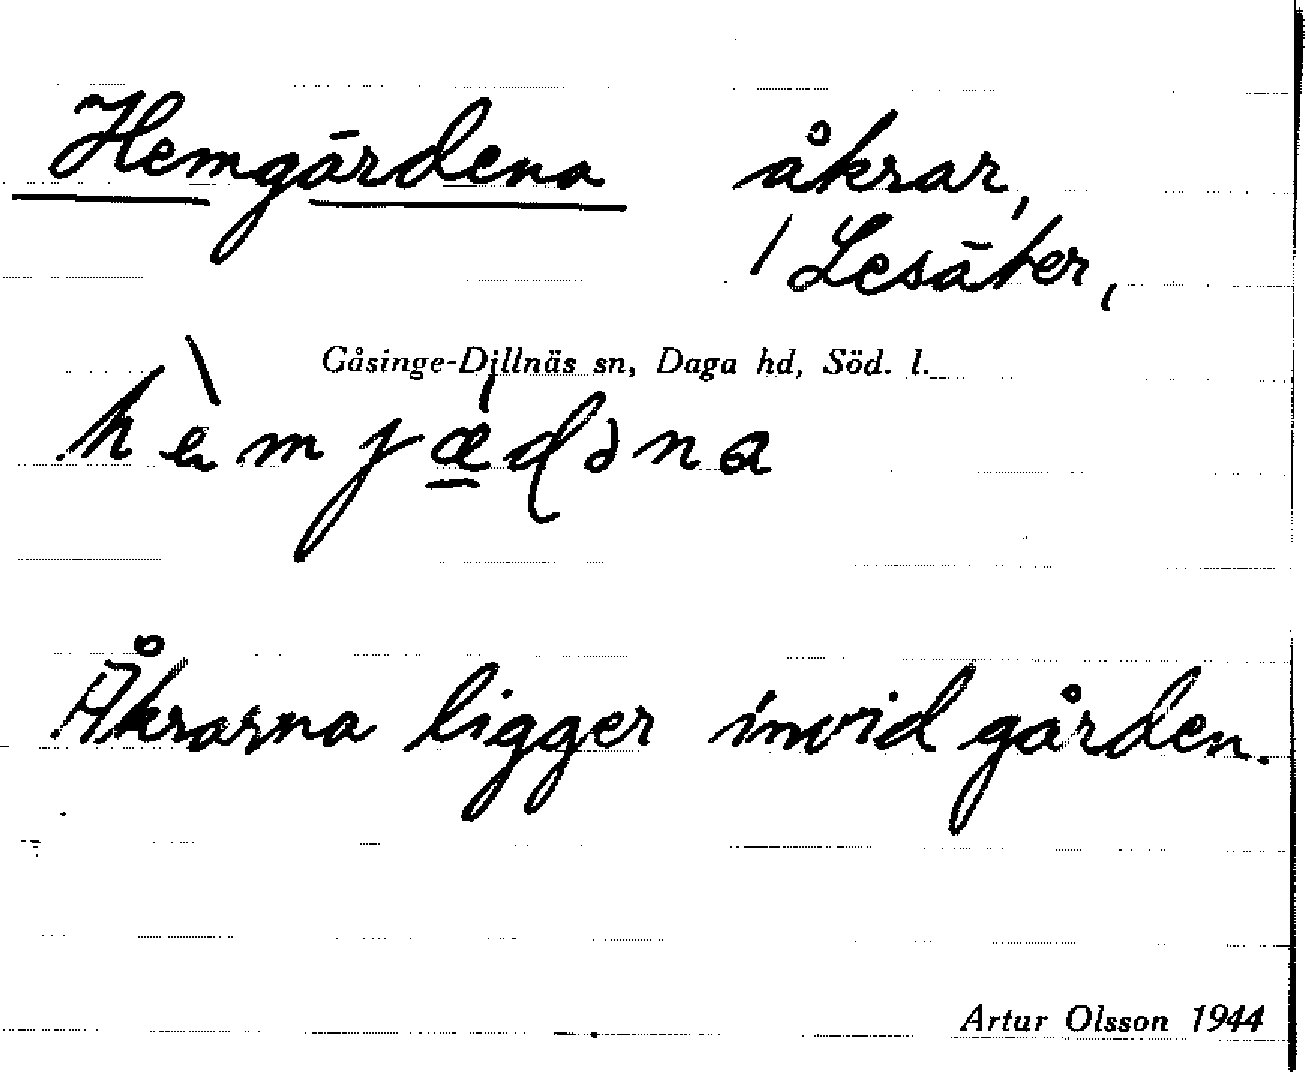 Hemgärdena åkrar,
/ Lesäter,
Gåsinge-Dillnäs sn, Daga hd, Söd. l.
Åkrarna ligger invid gården.
Artur Olsson 1944